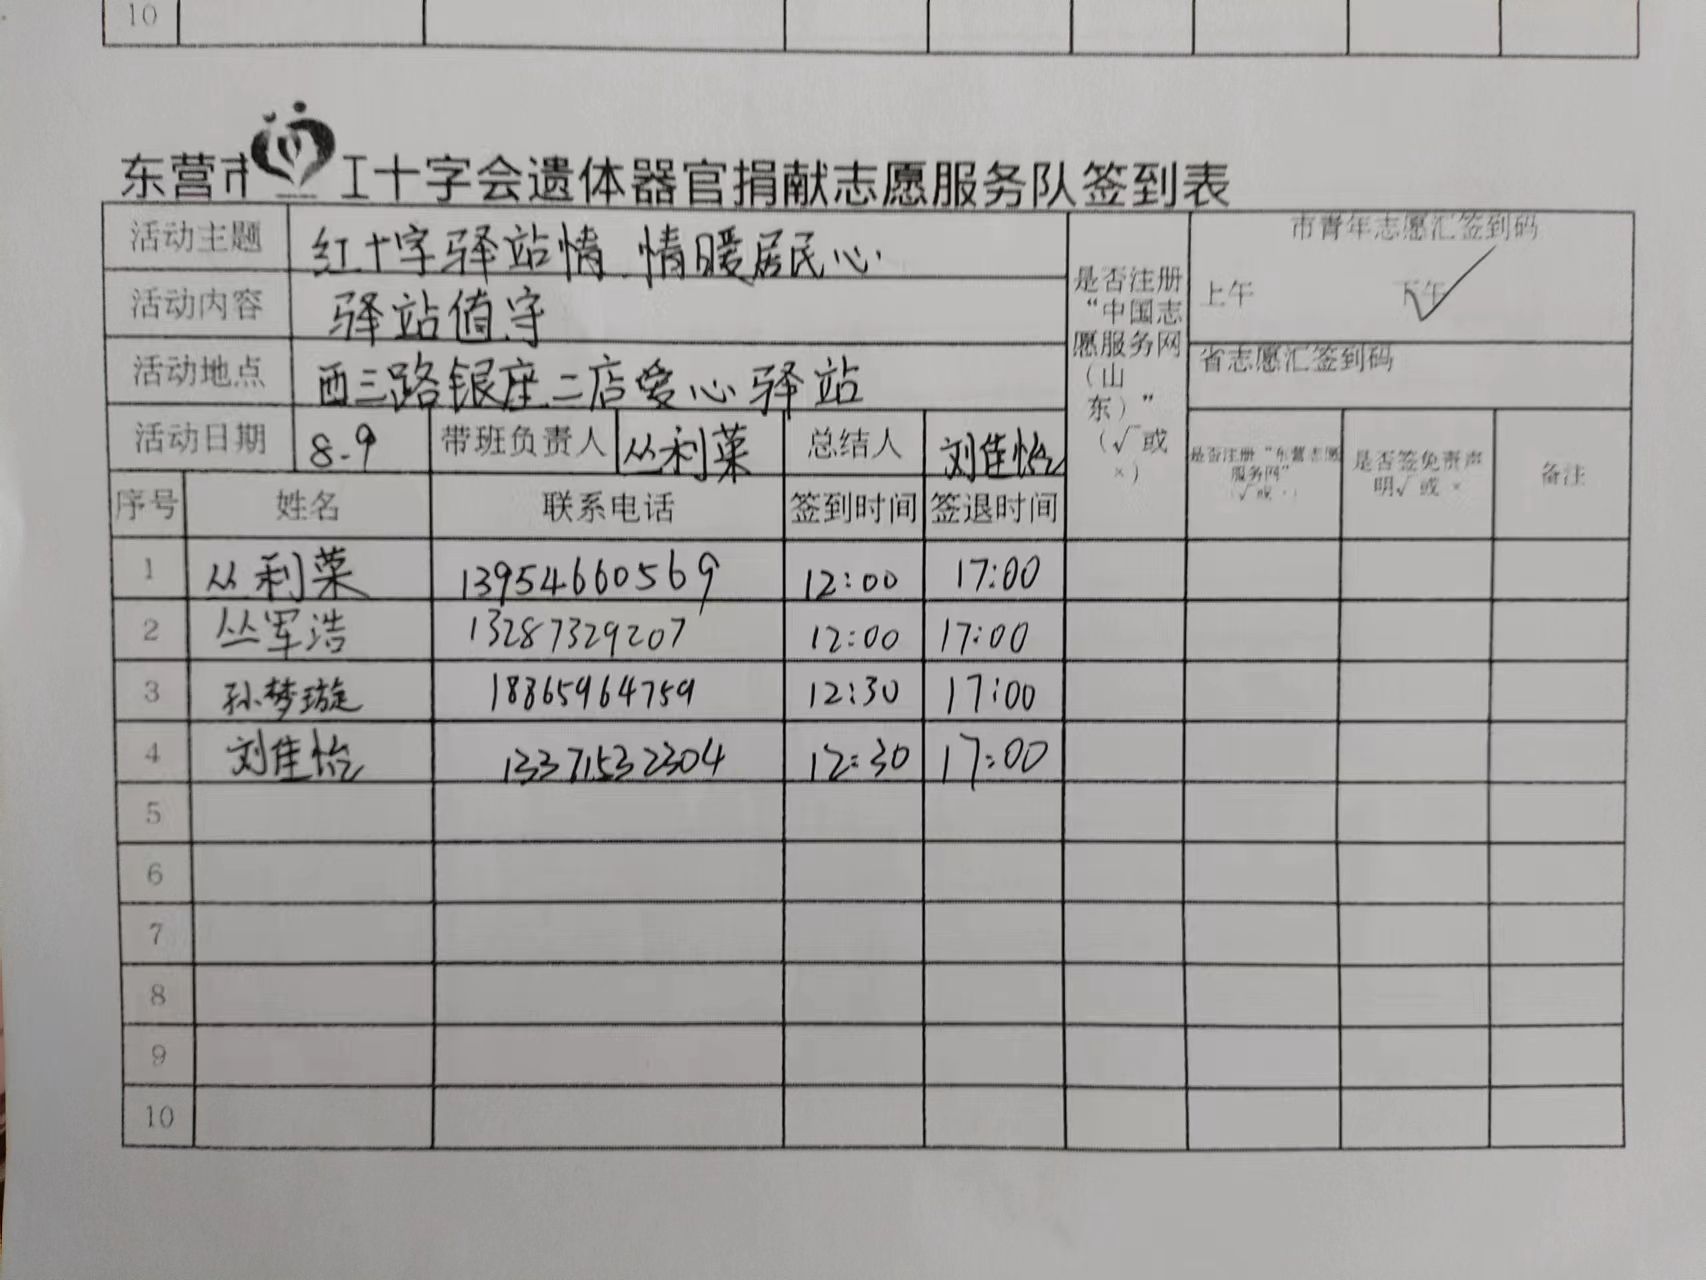 10
东营市 红十字会遗体器官捐献志愿服务队签到表
活动主题 红十字驿站情 情暖居民心 是否注册“中国志愿服务网(山东)”(√或×) 市青年志愿汇签到码
活动内容 驿站值守 上午 下午 ✓
活动地点 西三路银座二店爱心驿站 省志愿汇签到码
活动日期 8.9 带班负责人 丛利菜 总结人 刘佳怡 是否注册“东营志愿服务网”(√或×) 是否签免责声明√或× 备注
序号 姓名 联系电话 签到时间 签退时间
1 丛利菜 13954660569 12:00 17:00
2 丛军浩 13287329207 12:00 17:00
3 孙梦璇 18865964759 12:30 17:00
4 刘佳怡 13371532304 12:30 17:00
5
6
7
8
9
10